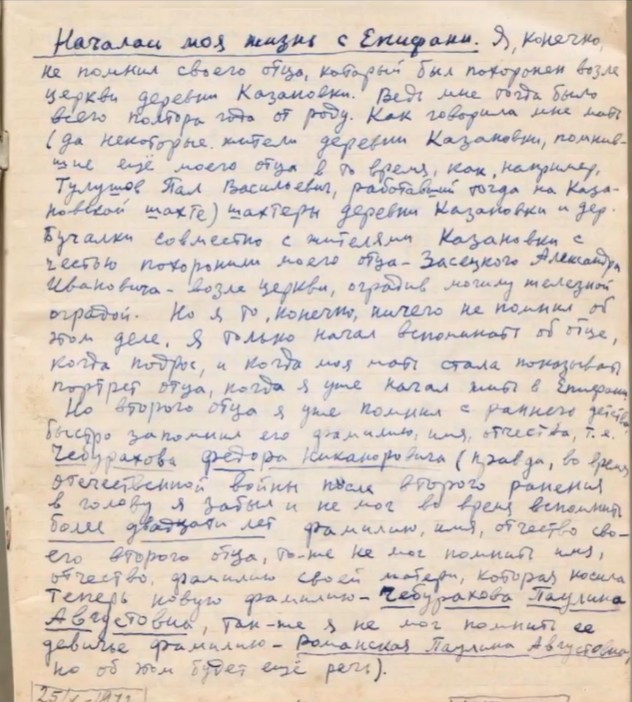 Началась моя жизнь с Епифани. Я, конечно,
не помнил своего отца, который был похоронен возле
церкви деревни Казановки. Ведь мне тогда было
всего полтора года от роду. Как говорила мне мать
(да некоторые жители деревни Казановки, помнив-
шие ещё моего отца в то время, как, например,
Тулушов Пал Васильевич, работавший тогда на Каза-
новской шахте) шахтеры деревни Казановки и дер.
Бучалки совместно с жителями Казановки с
честью похоронили моего отца - Засецкого Александра
Ивановича - возле церкви, оградив могилу железной
оградой. Но я то, конечно, ничего не помнил об
этом деле. Я только начал вспоминать об отце,
когда подрос, и когда моя мать стала показывать
портрет отца, когда я уже начал жить в Епифани.
Но второго отца я уже помнил с раннего детства,
быстро запомнил его фамилию, имя, отчества, т.е.
Чебурахова Федора Никаноровича (правда, во время
отечественной войны после второго ранения
в голову я забыл и не мог во время вспомнить
более двадцати лет фамилию, имя, отчество сво-
его второго отца, то-же не мог помнить имя,
отчество, фамилию своей матери, которая носила
теперь новую фамилию - Чебурахова Паулина
Августовна, так-же я не мог помнить ее
девичье фамилию - Романская Паулина Августовна,
но об этом будет ещё речь).